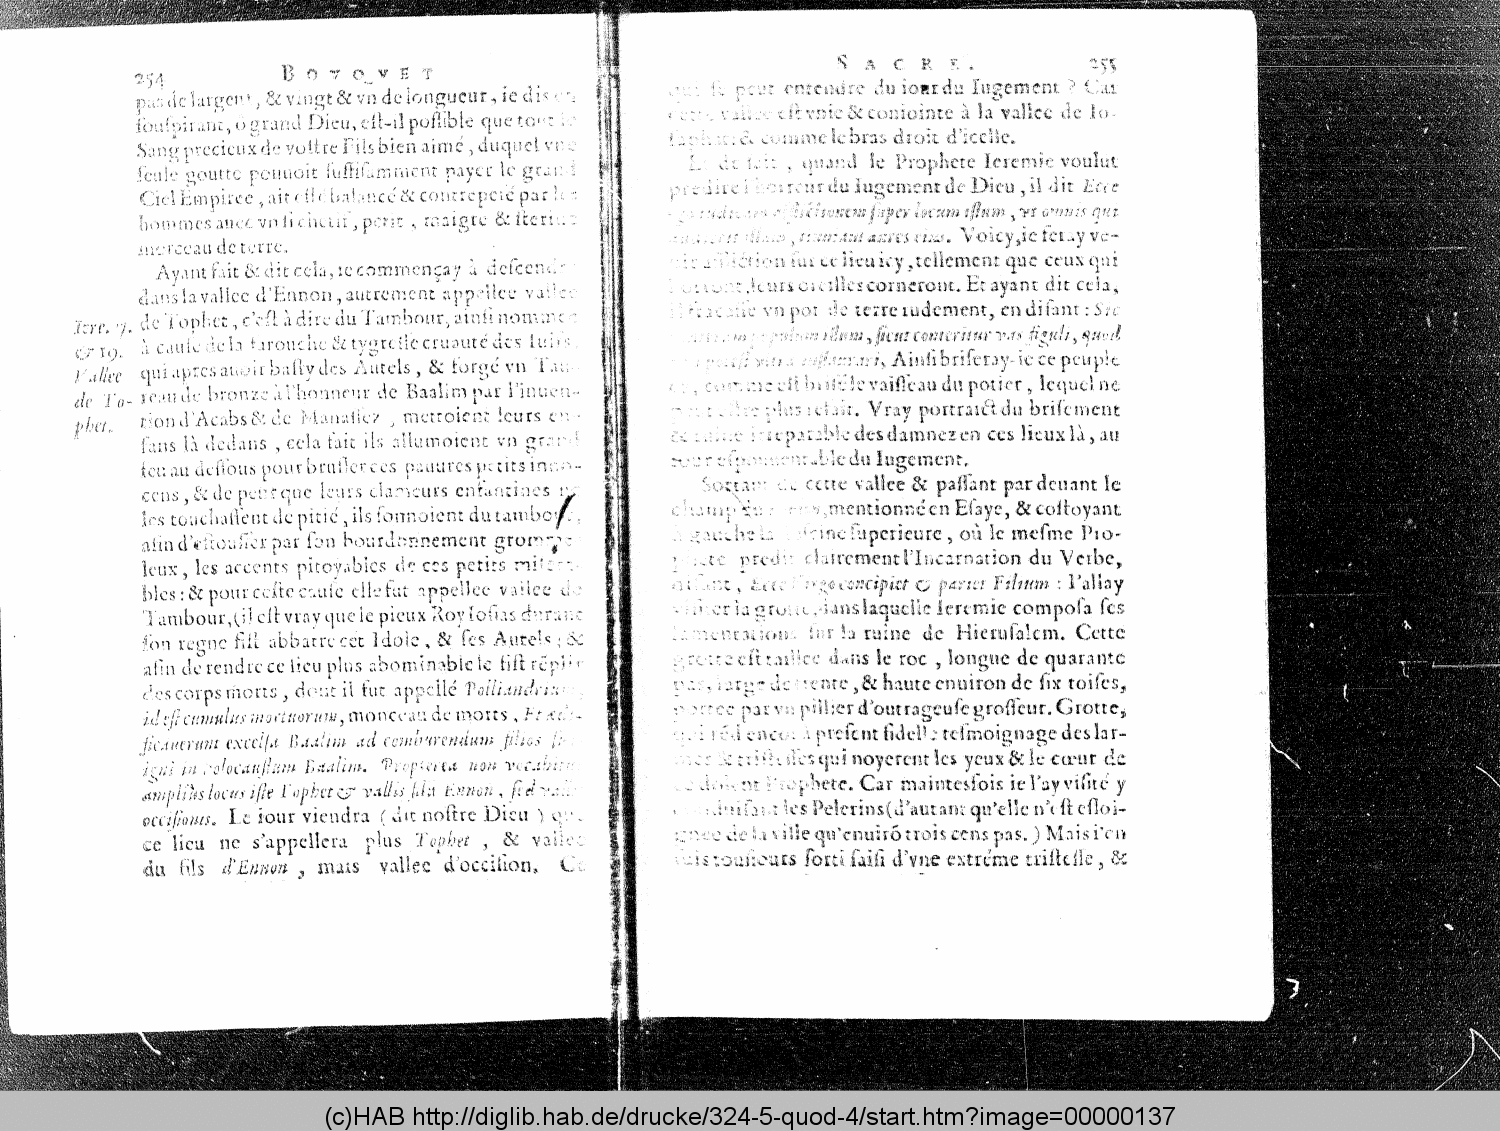 254 BOVQVET
pas de largeur, & vingt & vn de longueur, ie dis en
souspirant, ô grand Dieu, est-il possible que tout le
Sang precieux de vostre Fils bien aimé, duquel vne
seule goutte pouuoit suffisamment payer le grand
Ciel Empiree, ait esté balancé & contrepeté par les
hommes auec vn si chetif, petit, maigre & sterile
morceau de terre.
Ayant fait & dit cela, ie commençay à descendre
dans la vallee d'Ennon, autrement appellee vallee
de Tophet, c'est à dire du Tambour, ainsi nommee
à cause de la farouche & tygresse cruauté des Iuifs,
qui apres auoir basty des Autels, & forgé vn Tau-
reau de bronze à l'honneur de Baalim par l'inuen-
tion d'Acabs & de Manassez, mettoient leurs en-
fans là dedans, cela fait ils allumoient vn grand
feu au dessous pour brusler ces pauures petits inno-
cens, & de peur que leurs clameurs enfantines ne
les touchassent de pitié, ils sonnoient du tambour,
afin d'estouffer par son bourdonnement gromme-
leux, les accents pitoyables de ces petits misera-
bles: & pour ceste cause elle fut appellee vallee de
Tambour, (il est vray que le pieux Roy Iosias durant
son regne fist abbatre cet Idole, & ses Autels; &
afin de rendre ce lieu plus abominable le fist réplir
des corps morts, dont il fut appellé Polliandrium,
id est cumulus mortuorum, monceau de morts, Et ædi-
ficauerunt excelsa Baalim ad comburendum filios suos
igni in holocaustum Baalim. Propterea non vocabitur
amplius locus iste Tophet & vallis filij Ennon, sed vallis
occisionis. Le iour viendra (dit nostre Dieu) que
ce lieu ne s'appellera plus Tophet, & vallee
du fils d'Ennon, mais vallee d'occision, Ce
Iere. 7.
& 19.
Vallee
de To-
phet.
SACRE. 255
qui se peut entendre du iour du Iugement? Car
cette vallee est vnie & conionte à la vallee de Io-
saphat, & comme le bras droit d'icelle.
Et de fait, quand le Prophete Ieremie voulut
predire l'horreur du Iugement de Dieu, il dit Ecce
ego inducam afflictionem super locum istum, vt omnis qui
audierit illam, tinniant aures eius. Voicy, ie feray ve-
nir affliction sur ce lieu icy, tellement que ceux qui
l'oiront, leurs oreilles corneront. Et ayant dit cela,
il fracasse vn pot de terre rudement, en disant: Sic
conteram populum istum, sicut conteritur vas figuli, quod
non potest vltra instaurari, Ainsi briseray-ie ce peuple
cy, comme est brisé le vaisseau du potier, lequel ne
peut estre plus refait. Vray portraict du brisement
& ruine irreparable des damnez en ces lieux là, au
iour espouuentable du Iugement.
Sortant de cette vallee & passant par deuant le
champ mentionné en Esaye, & costoyant
à gauche la piscine superieure, où le mesme Pro-
phete predit clairement l'Incarnation du Verbe,
disant, Ecce Virgo concipiet & pariet Filium: l'allay
visiter la grotte, dans laquelle Ieremie composa ses
lamentations sur la ruine de Hierusalem. Cette
grotte est taillee dans le roc, longue de quarante
pas, large de trente, & haute enuiron de six toises,
portee par vn pillier d'outrageuse grosseur. Grotte,
qui réd encor à present fidelle tesmoignage des lar-
mes & tristesses qui noyerent les yeux & le cœur de
ce dolent Prophete. Car maintesfois ie l'ay visité y
conduisant les Pelerins (d'autant qu'elle n'est esloi-
gnee de la ville qu'enuirō trois cens pas.) Mais i'en
suis tousiours sorti saisi d'vne extréme tristesse, &
(c)HAB http://diglib.hab.de/drucke/324-5-quod-4/start.htm?image=00000137